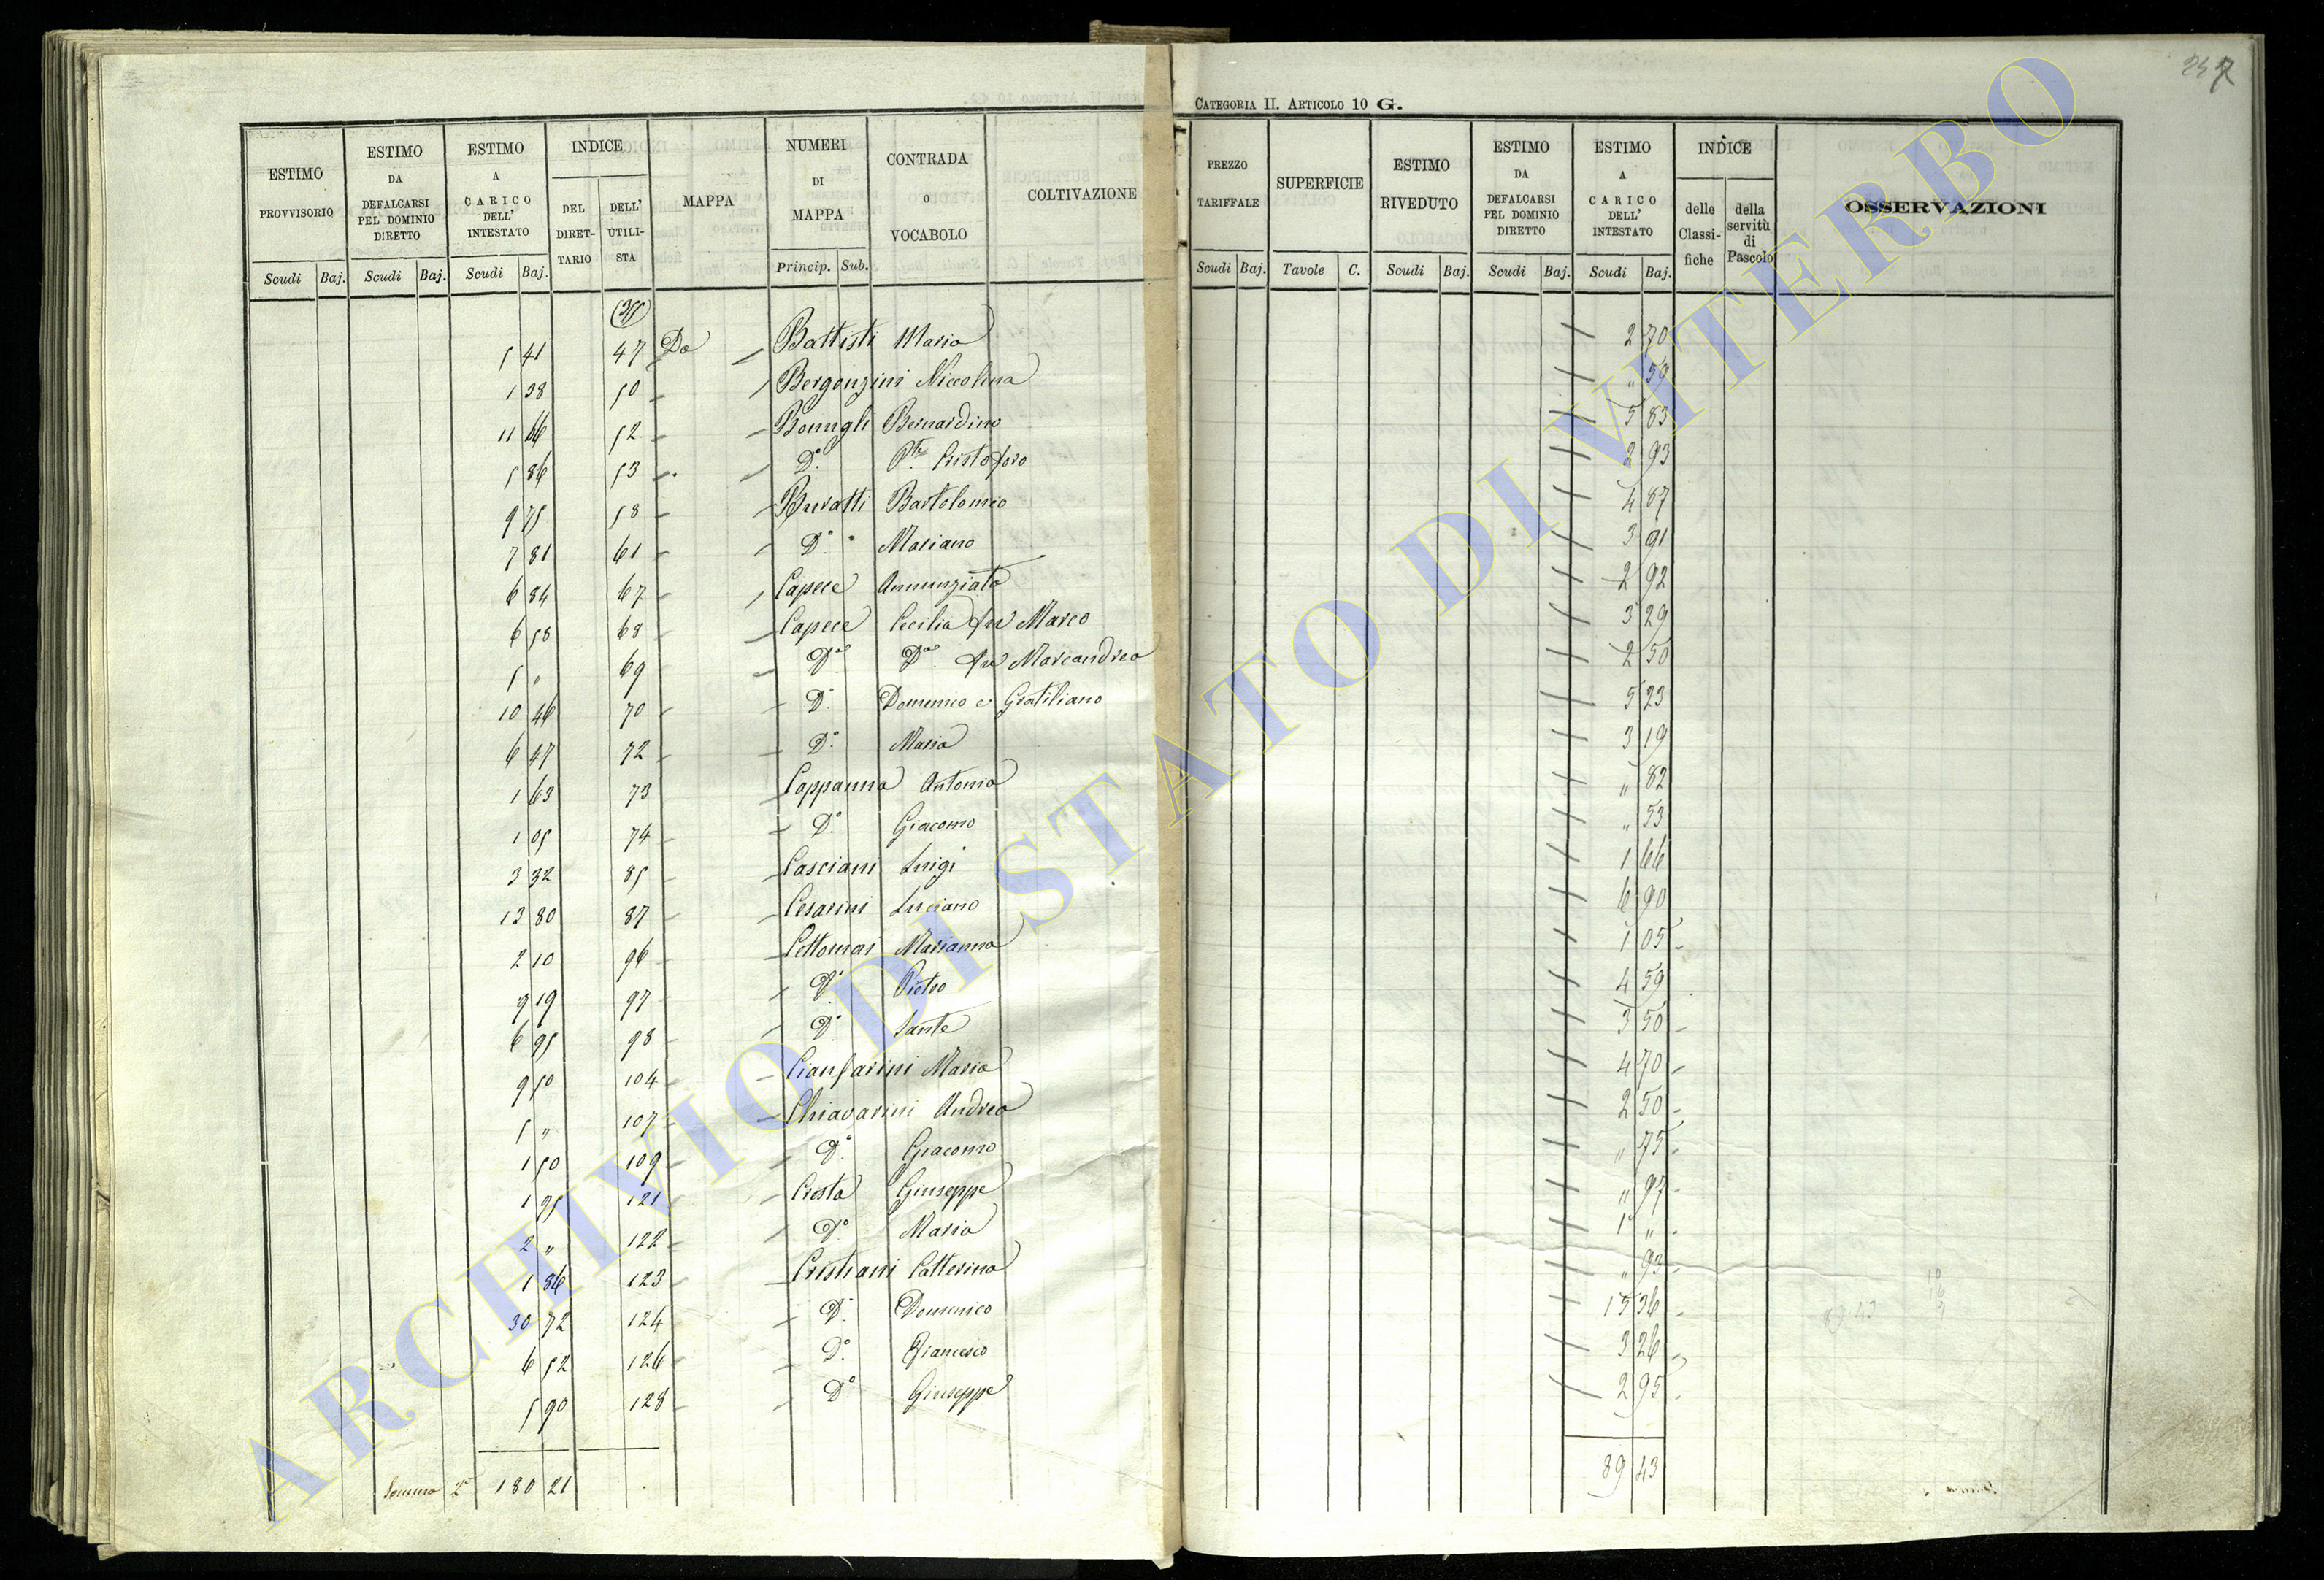 237
CATEGORIA II. ARTICOLO 10 G.
ESTIMO PROVVISORIO | ESTIMO DA DEFALCARSI PEL DOMINIO DIRETTO | ESTIMO A CARICO DELL' INTESTATO | INDICE DEL DIRETTARIO | DELL' UTILISTA | MAPPA | NUMERI DI MAPPA | CONTRADA O VOCABOLO | COLTIVAZIONE | PREZZO TARIFFALE | SUPERFICIE | ESTIMO RIVEDUTO | ESTIMO DA DEFALCARSI PEL DOMINIO DIRETTO | ESTIMO A CARICO DELL' INTESTATO | INDICE delle Classifiche | della servitù di Pascolo | OSSERVAZIONI
Scudi Baj. | Scudi Baj. | Scudi Baj. | Princip. Sub. | Scudi Baj. | Tavole C. | Scudi Baj. | Scudi Baj. | Scudi Baj.
5 41 47 Da Battisti Maria 2 70
1 38 50 Bergonzini Niccolina " 59
11 66 52 Bernardino 5 83
5 86 53 Do. Cristoforo 2 93
9 75 58 Buratti Bartolomeo 4 87
7 81 61 Do. Mariano 3 91
6 84 67 Capece Annunziata 2 92
6 58 68 Capece Cecilia fra Marco 3 29
5 " 69 Do. Do. fra Marcandrea 2 50
10 46 70 Do. Domenico e Gratiliano 5 23
6 47 72 Do. Maria 3 19
1 63 73 Cappanna Antonia " 82
1 05 74 Do. Giacomo " 53
3 32 85 Casciani Luigi 1 66
13 80 87 Cesarini Luciano 6 90
2 10 96 Marianna 1 05
9 19 97 Do. Pietro 4 59
6 95 98 Do. Sante 3 50
9 50 104 Cianfarini Maria 4 70
5 " 107 Chiavarini Andrea 2 50
1 50 109 Do. Giacomo " 75
1 95 121 Cresta Giuseppe " 97
2 " 122 Do. Maria 1 "
1 86 123 Cristiani Catterina " 93
30 72 124 Do. Domenico 15 36
6 52 126 Do. Francesco 3 26
5 90 128 Do. Giuseppe 2 95
Somma 180 21 89 43
ARCHIVIO DI STATO DI VITERBO